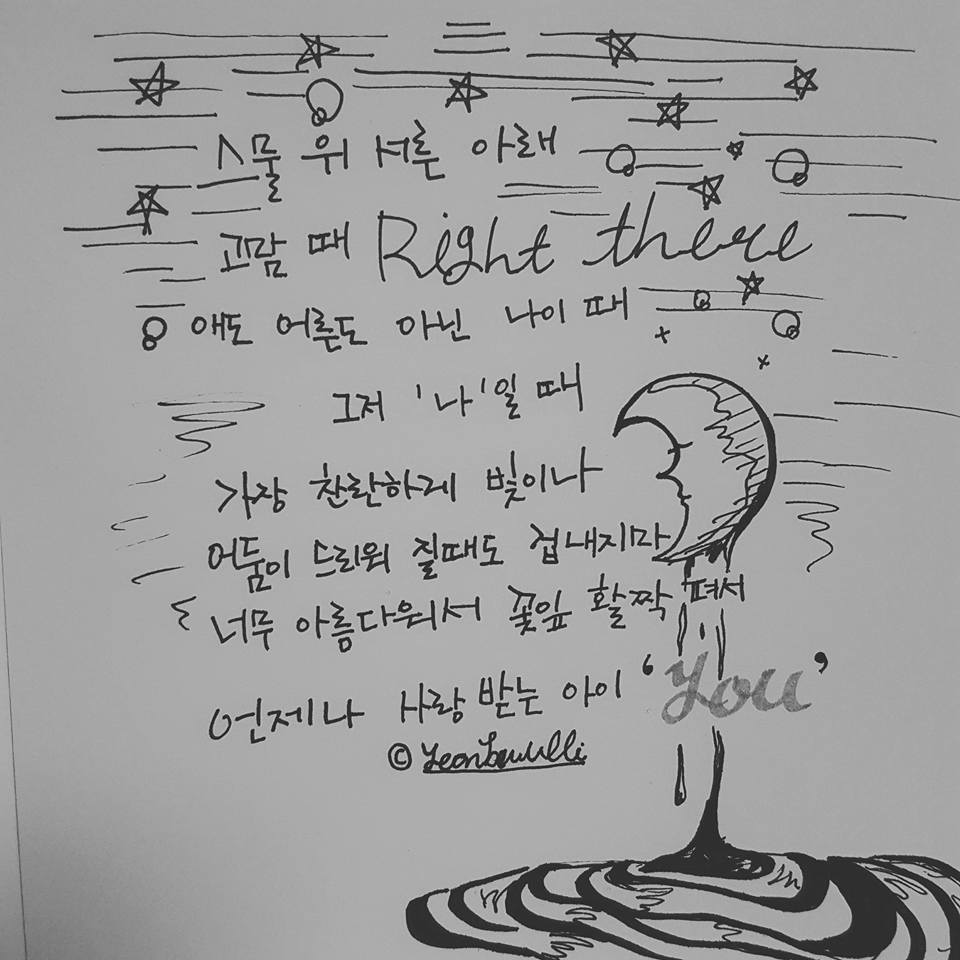 스물 위 서른 아래
고맘 때 Right there
애도 어른도 아닌 나이 때
그저 '나'일 때
가장 찬란하게 빛이나
어둠이 드리워 질때도 겁내지마
너무 아름다워서 꽃잎 활짝 펴서
언제나 사랑 받는 아이 'You'
©